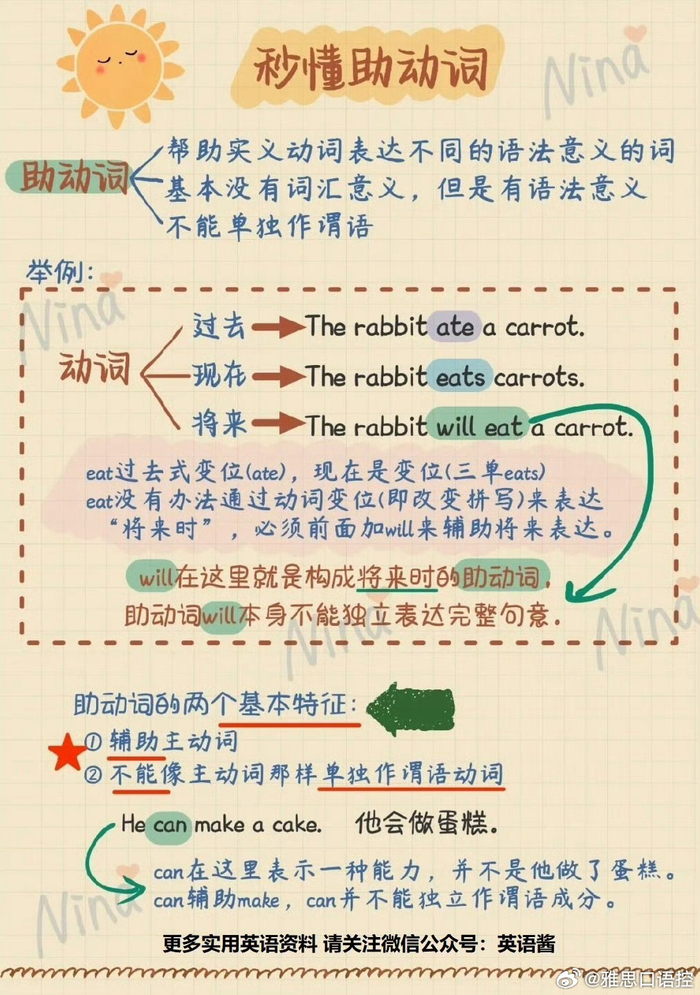 秒懂助动词
Nina
助动词
帮助实义动词表达不同的语法意义的词
基本没有词汇意义，但是有语法意义
不能单独作谓语
举例：
Nina
动词
过去 The rabbit ate a carrot.
现在 The rabbit eats carrots.
将来 The rabbit will eat a carrot.
eat过去式变位(ate)，现在是变位(三单eats)
eat没有办法通过动词变位(即改变拼写)来表达
“将来时”，必须前面加will来辅助将来表达。
will在这里就是构成将来时的助动词，
助动词will本身不能独立表达完整句意．
Nina
Nina
助动词的两个基本特征：
① 辅助主动词
② 不能像主动词那样单独作谓语动词
He can make a cake. 他会做蛋糕。
can在这里表示一种能力，并不是他做了蛋糕。
can辅助make，can并不能独立作谓语成分。
Nina
更多实用英语资料 请关注微信公众号：英语酱
@雅思口语控